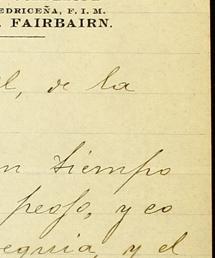 EDRICEÑA, F. I. M.
. FAIRBAIRN.
l, de la
n tiempo
peoso, y co
equia, y el